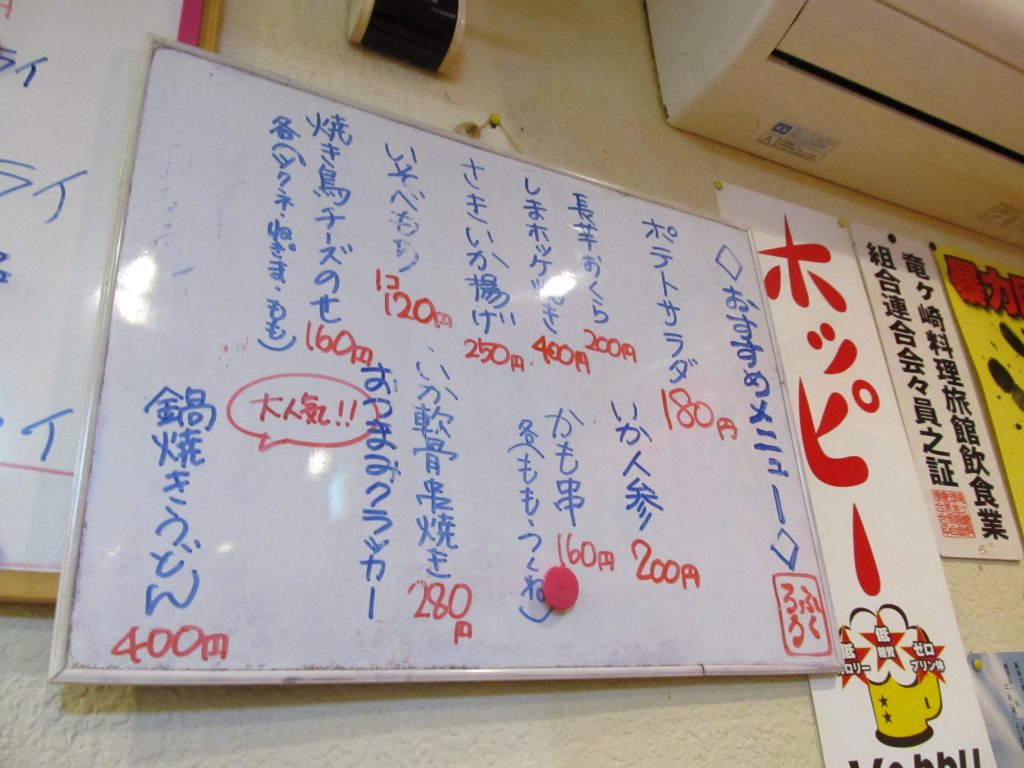 ◇おすすめメニュー◇
ポテトサラダ
180円
長芋おくら
200円
しまホッケ
400円
さきいか揚げ
250円
いそべもち
1コ
120円
焼き鳥チーズのせ
各(ツクネ・ねぎま・もも)
160円
いか人参
200円
かも串
各(もも・つくね)
160円
いか軟骨串焼き
280円
おつまみクラッカー
大人気!!
鍋焼きうどん
400円
ホッピー
低
低
糖質
ゼロ
プリン体
竜ヶ崎料理旅館飲食業
組合連合会々員之証
暴力
ライ
ライ
イ